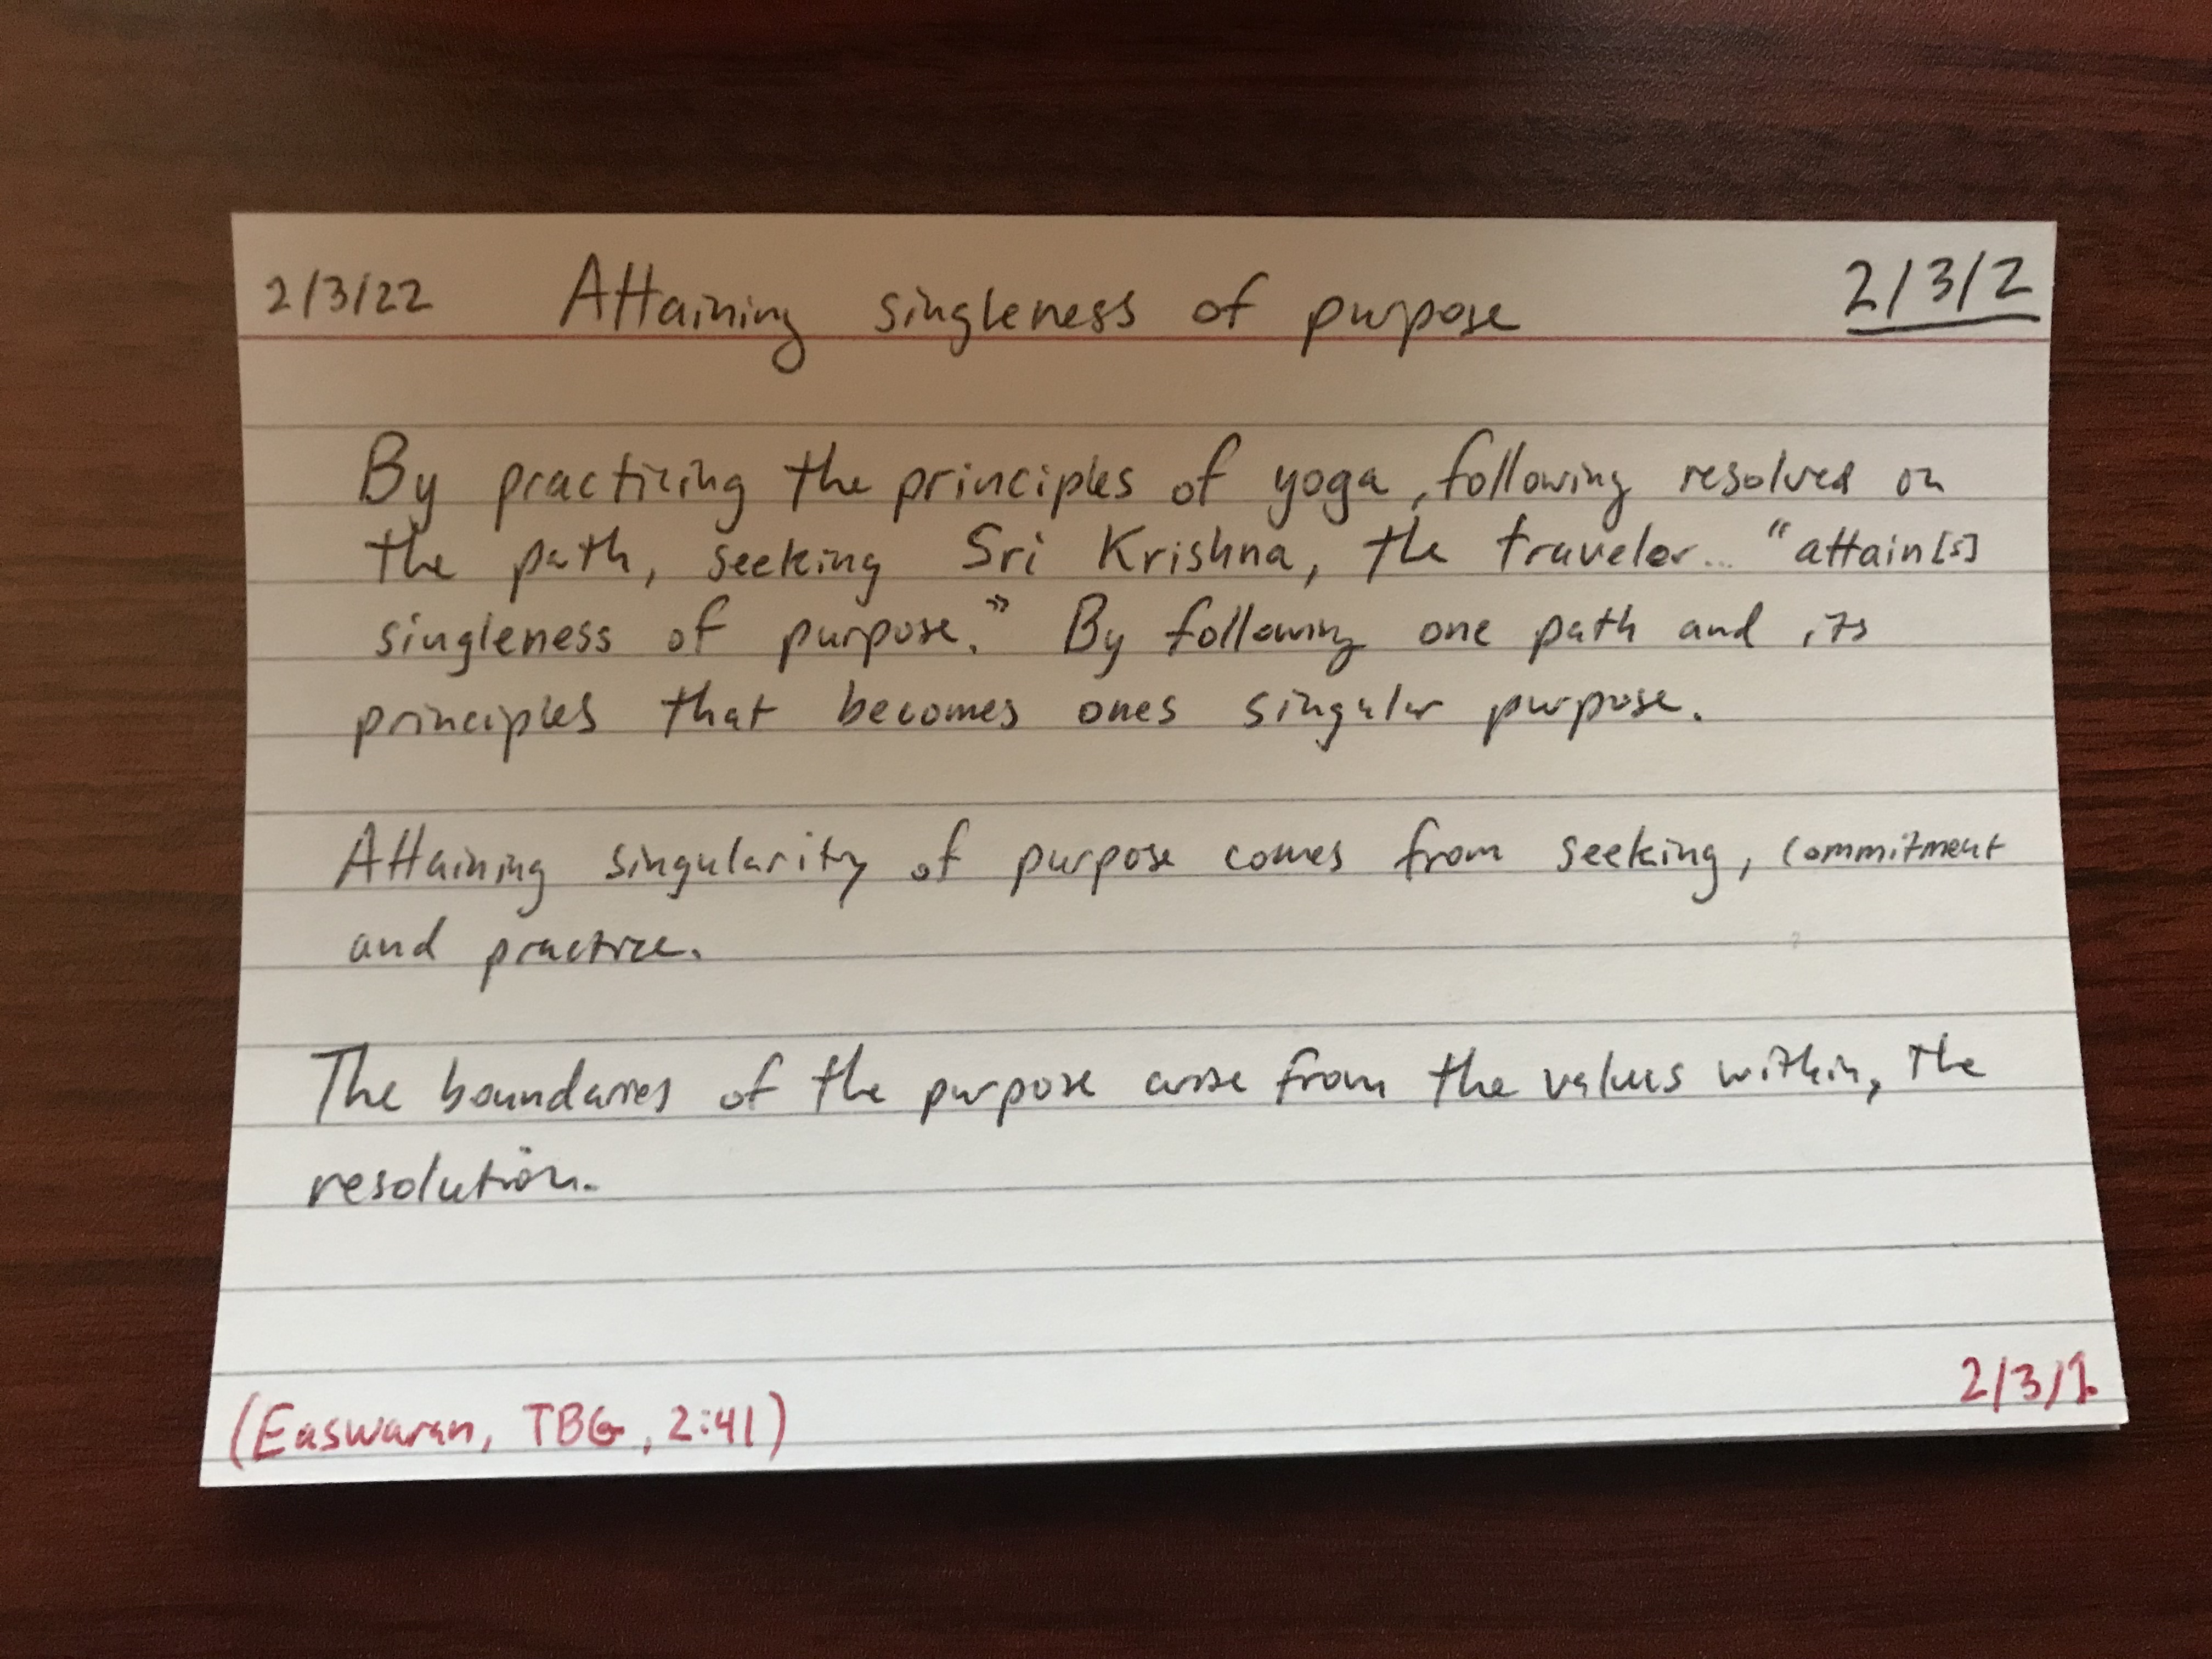 2/3/22 Attaining singleness of purpose 2/3/2
By practicing the principles of yoga, following resolved on
the path, seeking Sri Krishna, the traveler... "attain[s]
singleness of purpose." By following one path and its
principles that becomes ones singular purpose.
Attaining singularity of purpose comes from seeking, commitment
and practice.
The boundaries of the purpose arise from the values within, the
resolution.
(Easwaran, TBG, 2:41) 2/3/1